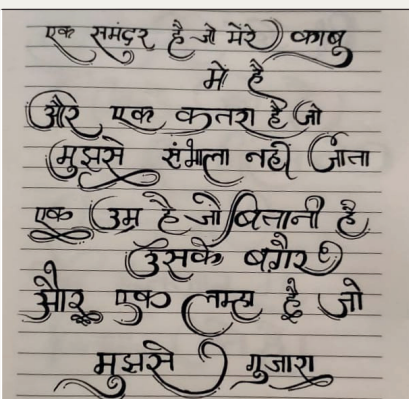 एक समंदर है जो मेरे काबु
में है
और एक कतरा है जो
मुझसे संभाला नहीं जाता
एक उम्र है जो बितानी है
उसके बग़ैर
और एक लम्हा है जो
मुझसे गुजारा